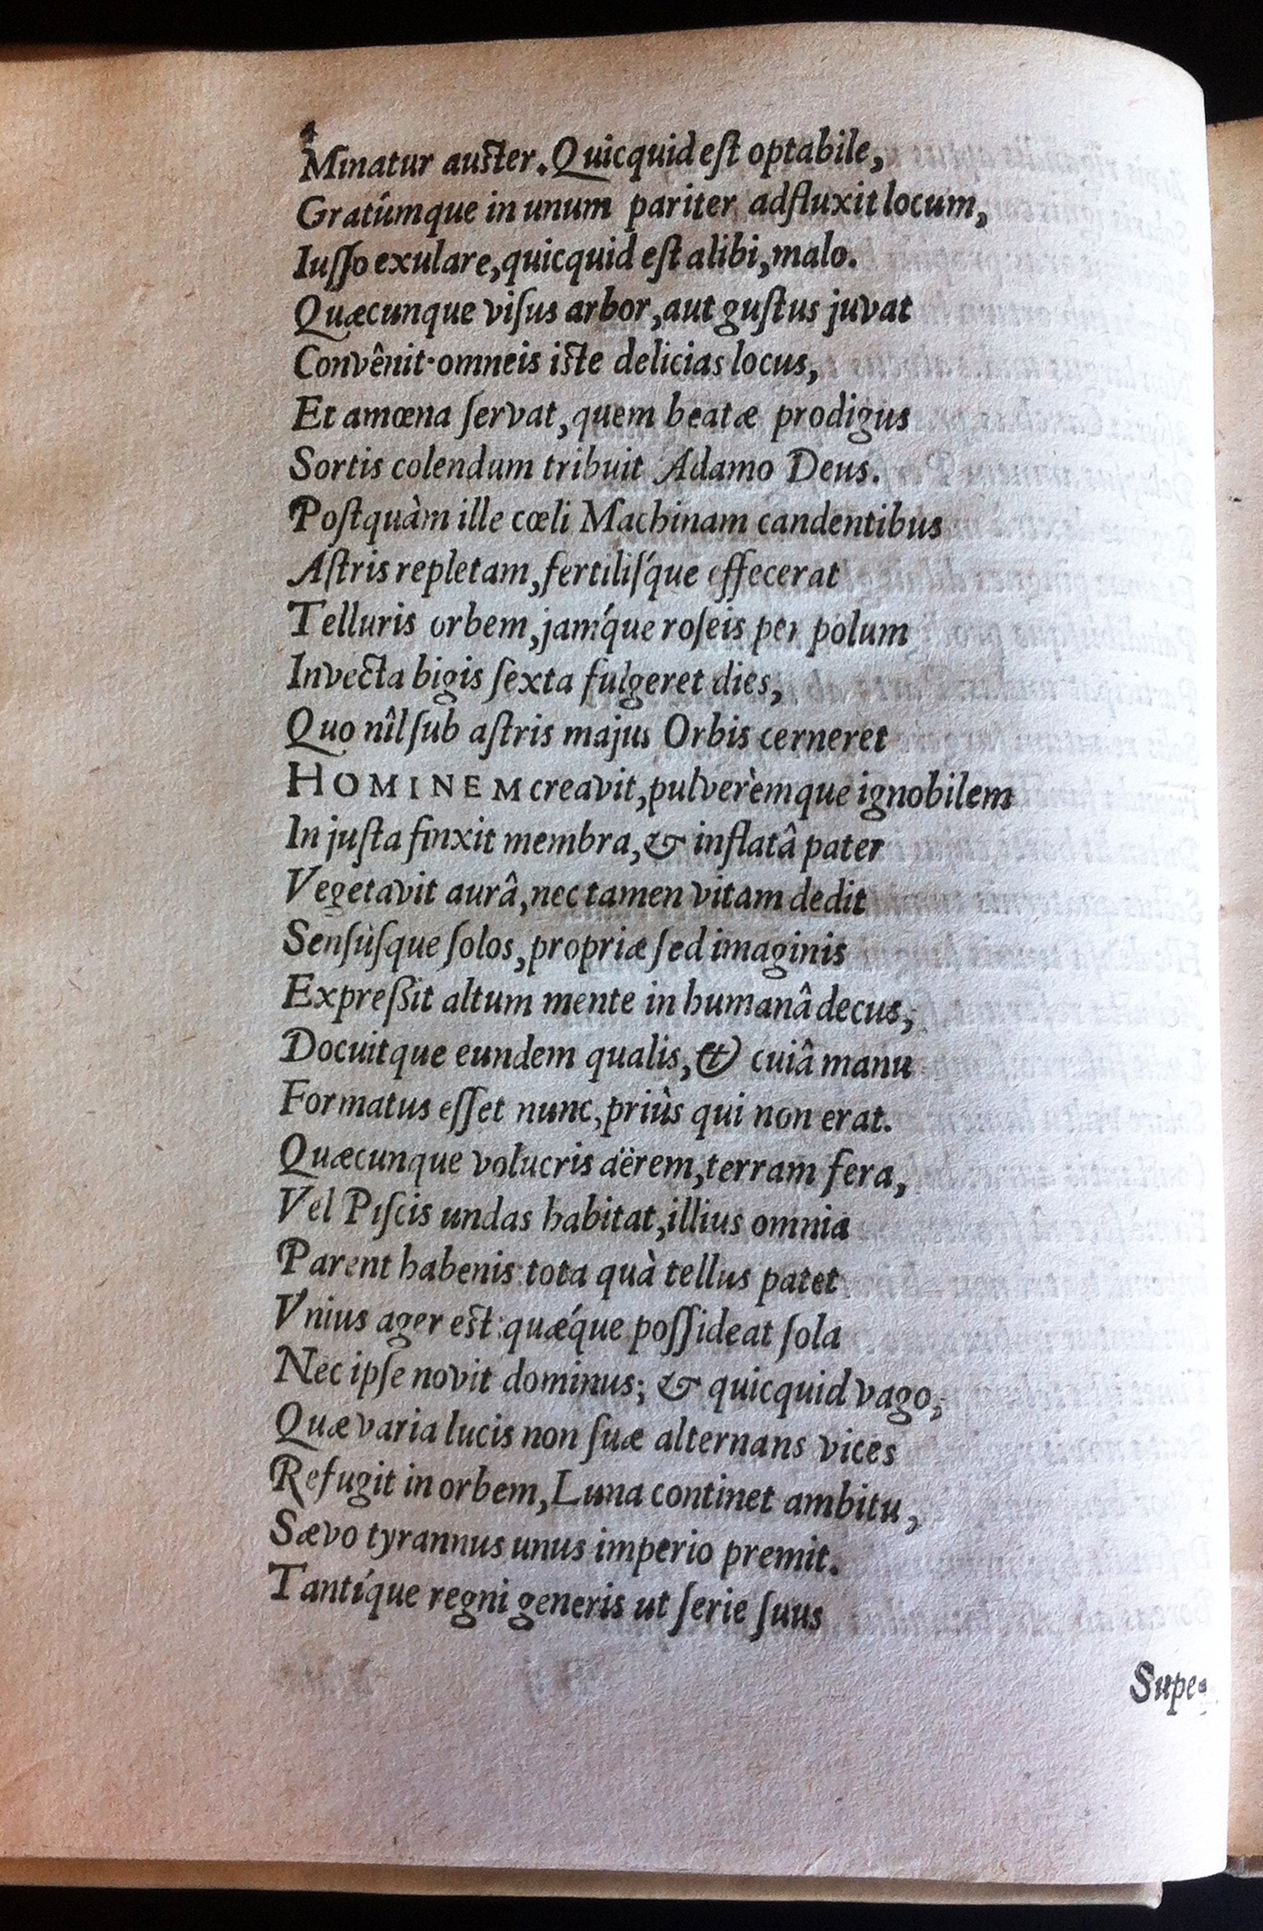 4
Minatur auster. Quicquid est optabile,
Gratûmque in unum pariter adfluxit locum,
Iuſſo exulare, quicquid eſt alibi, malo.
Quæcunque viſus arbor, aut guſtus juvat
Convênit·omneis iste delicias locus,
Et amœna ſervat, quem beatæ prodigus
Sortis colendum tribuit Adamo Deus.
Poſtquàm ille cœli Machinam candentibus
Aſtris repletam, fertiliſq́ue effecerat
Telluris orbem, jamq́ue roſeis per polum
Invecta bigis ſexta fulgeret dies,
Quo nîl ſub aſtris majus Orbis cerneret
HOMINEM creavit, pulverèmque ignobilem
In juſta finxit membra, & inflatâ pater
Vegetavit aurâ, nec tamen vitam dedit
Senſùſque ſolos, propriæ ſed imaginis
Expreſsit altum mente in humanâ decus,
Docuitque eundem qualis, & cuiâ manu
Formatus eſſet nunc, priùs qui non erat.
Quæcunque volucris aërem, terram fera,
Vel Piſcis undas habitat, illius omnia
Parent habenis: tota quà tellus patet
Vnius ager est: quæq́ue poſſideat ſola
Nec ipſe novit dominus; & quicquid vago,
Quæ varia lucis non ſuæ alternans vices
Refugit in orbem, Luna continet ambitu,
Sævo tyrannus unus imperio premit.
Tantiq́ue regni generis ut ſerie ſuus
Supe-